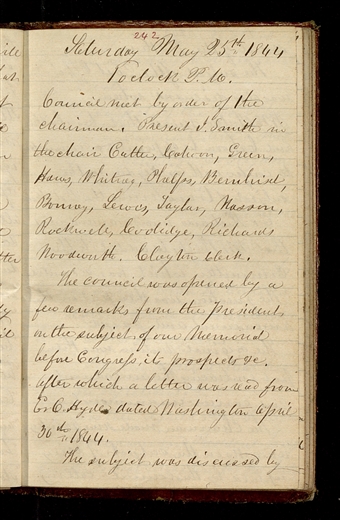 242
Saturday May 25th 1844
1 oclock P. M.
Council met by order of the
chairman. Present J. Smith in
the chair Cutler, Cahoon, Green,
Haws, Whitney, Phelps, Bernhisel,
Bonney, Lewis, Taylor, Wasson,
Rockwell, Coolidge, Richards
Woodworth. Clayton clerk.
The council was opened by a
few remarks from the President
on the subject of our Memorial
before Congress, its prospects &c.
after which a letter was read from
O. Hyde dated Washington April
30th 1844.
The subject was discussed by